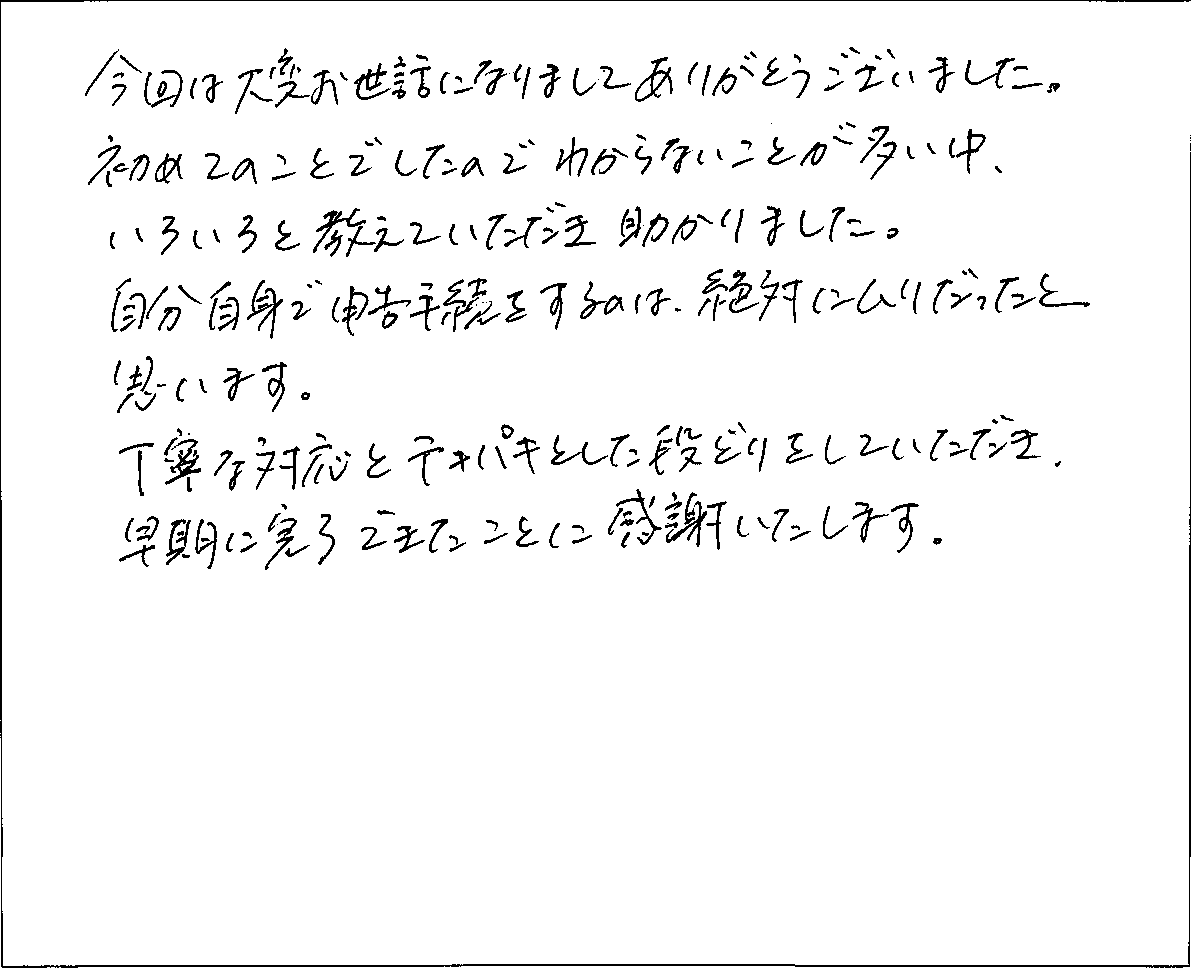 今回は大変お世話になりましてありがとうございました。
初めてのことでしたのでわからないことが多い中、
いろいろと教えていただき助かりました。
自分自身で申告手続をするのは、絶対にムリだったと
思います。
丁寧な対応とテキパキとした段どりをしていただき、
早期に完了できたことに感謝いたします。